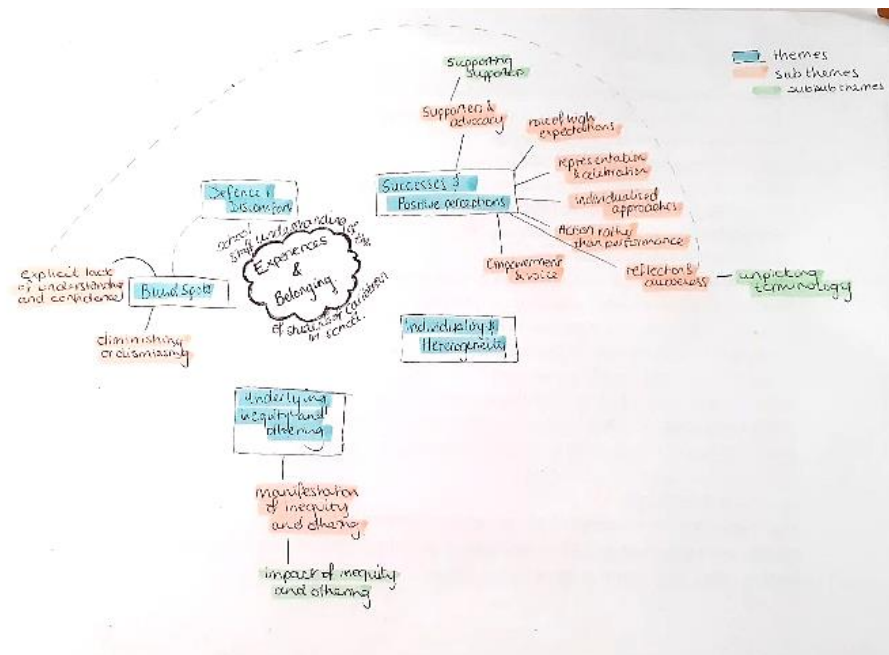 themes
sub themes
subsub themes
Supporting
supporters
Supporters &
advocacy
role of high
expectations
representation
& celebration
individualised
approaches
Action rather
than performance
reflection &
awareness
unpicking
terminology
Empowerment
& voice
Successes &
Positive perceptions
Defence &
Discomfort
school
staff understanding of the
Experiences
&
Belonging
of students of
in school.
explicit lack
of understanding
and confidence
Blind Spots
diminishing
or dismissing
Individuality &
Heterogeneity
Underlying
inequity and
othering
manifestation
of inequity
and othering
impact of inequity
and othering